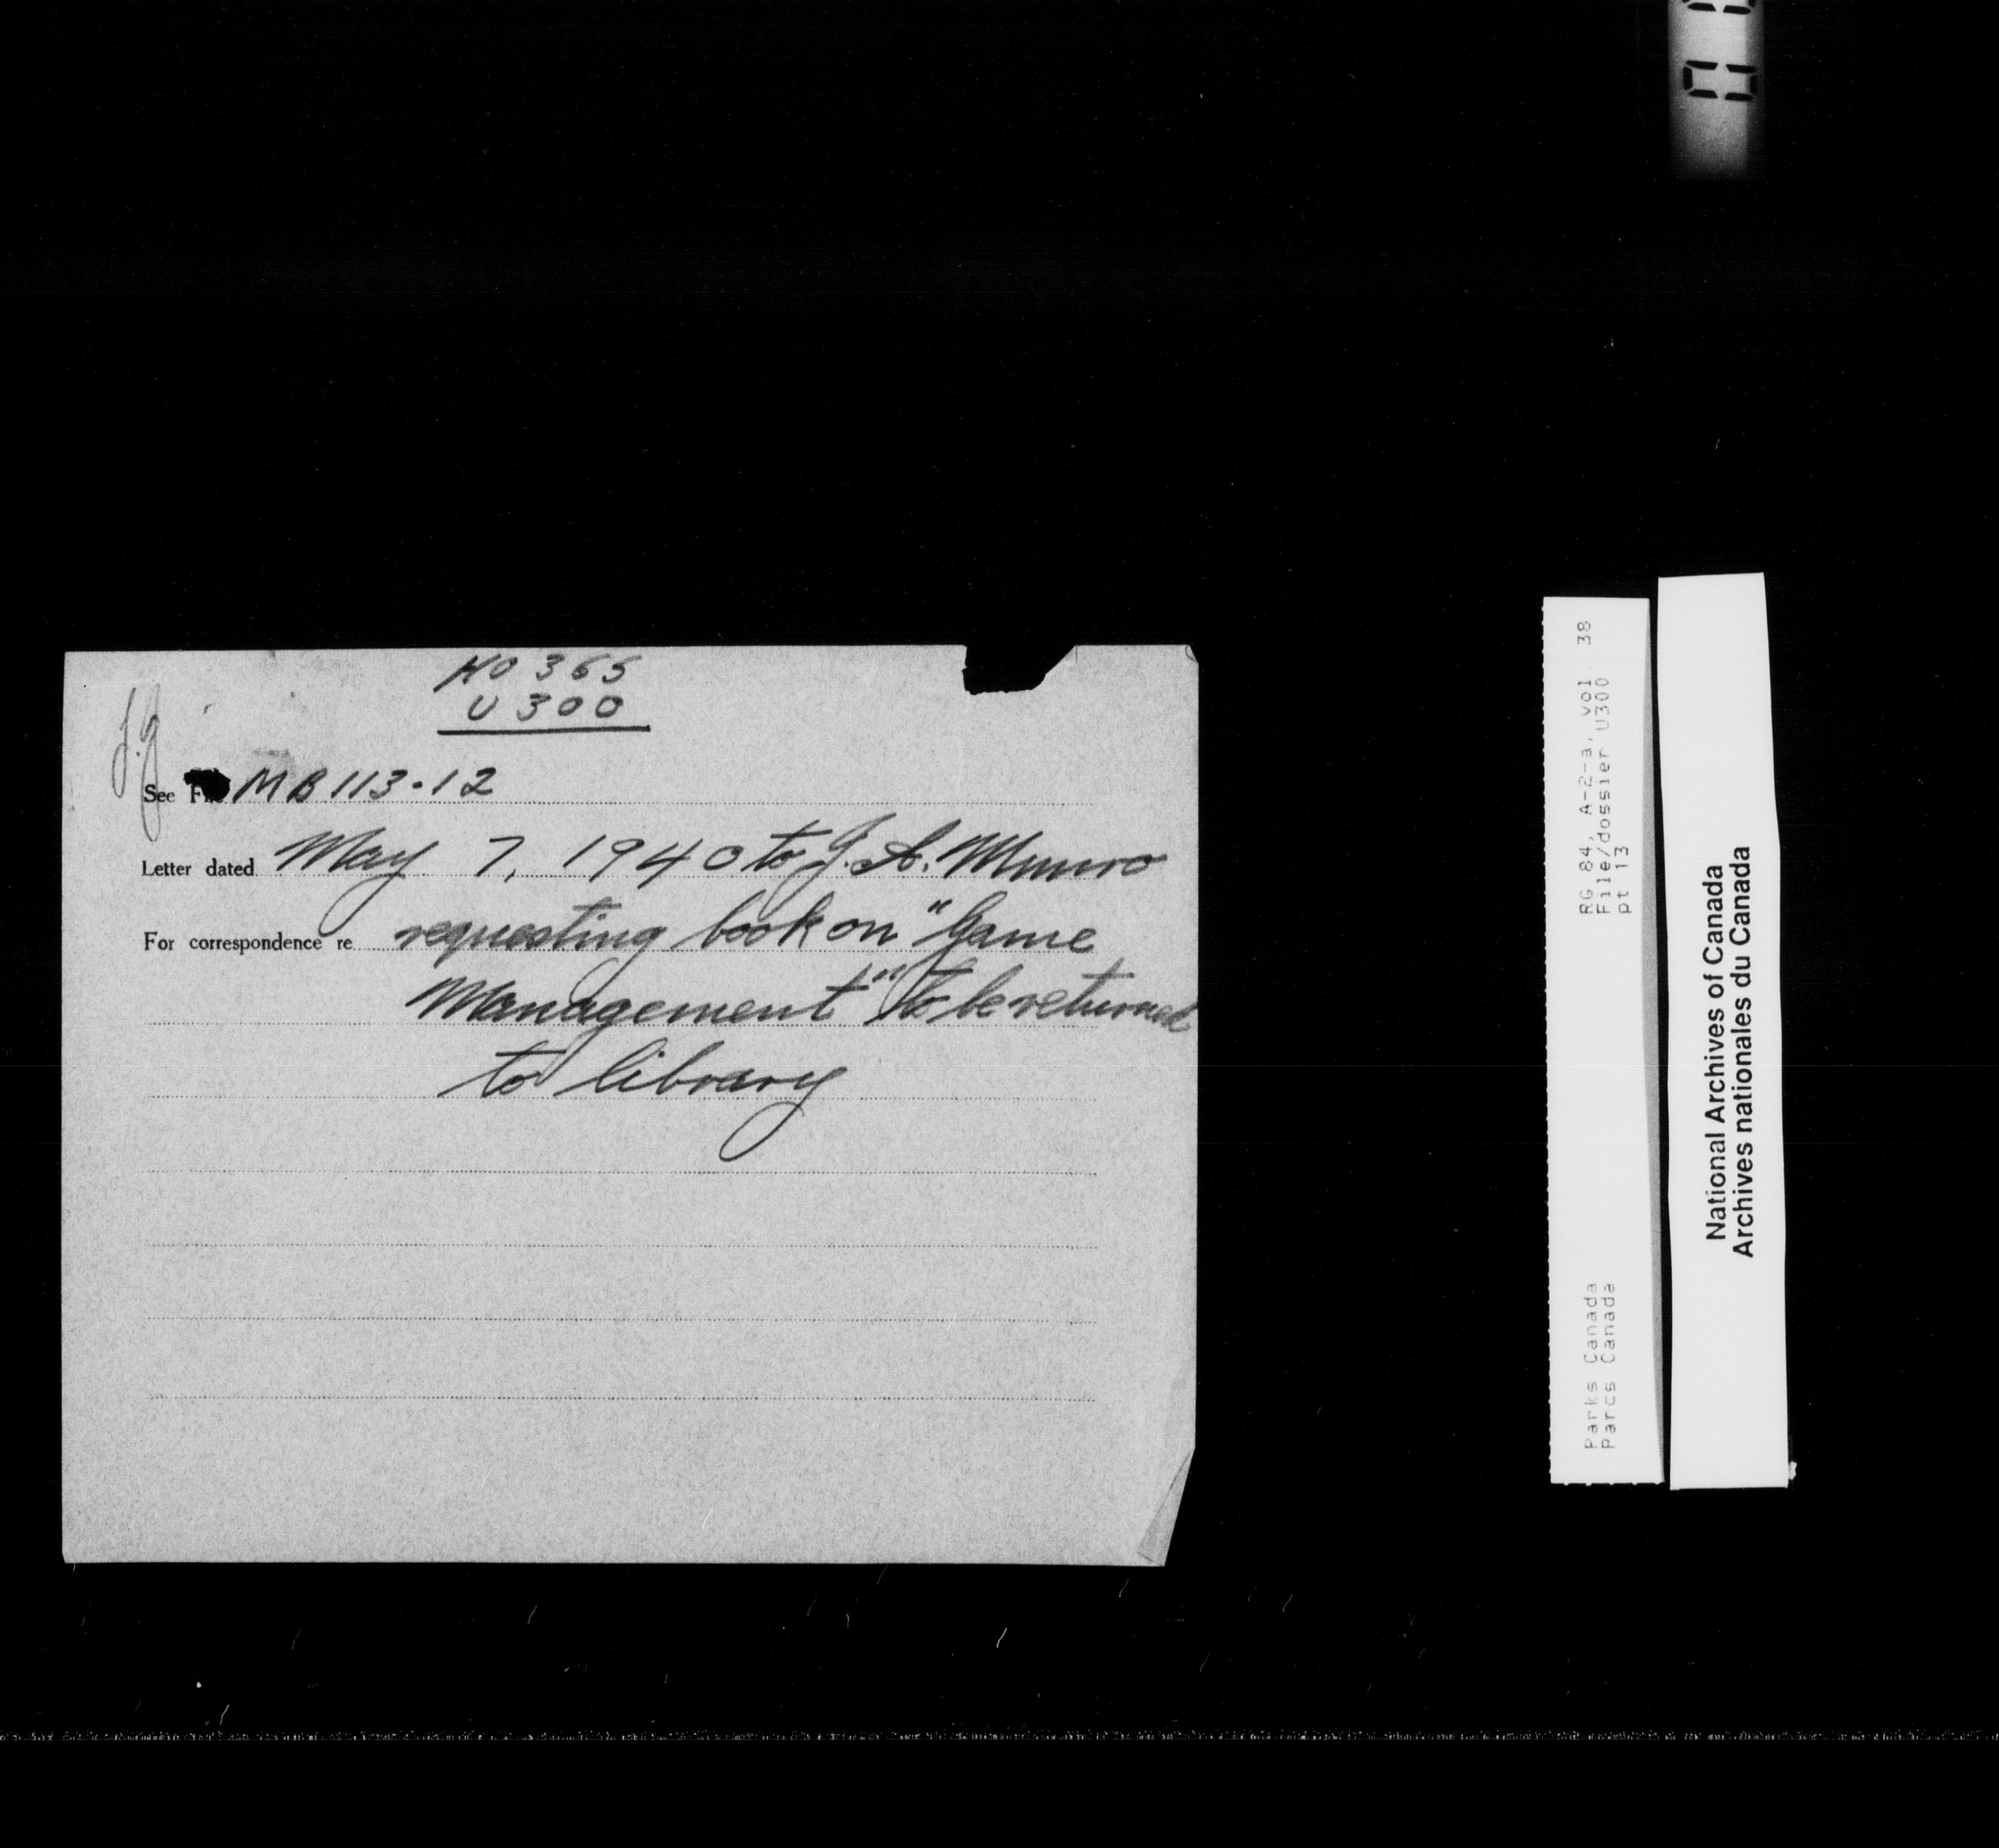 HO 365
U 300
See File MB 113-12
Letter dated May 7, 1940 to J. A. Munro
For correspondence re requesting book on "Game
Management" to be returned
to library
RG 84, A-2-a, vol 38
File/dossier U300
pt 13
Parks Canada
Parcs Canada
National Archives of Canada
Archives nationales du Canada